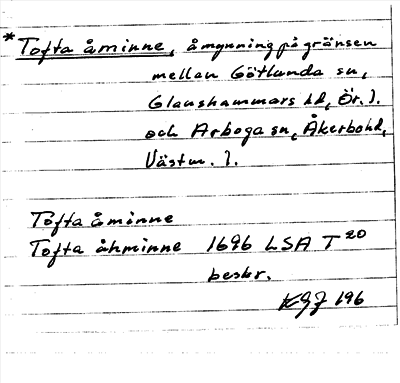 * Tofta åminne, åmynning på gränsen
mellan Götlunda sn,
Glanshammars hd, Ör. l.
och Arboga sn, Åkerbo hd,
Västm. l.
Tofta åminne
Tofta åhminne 1696 LSA T 20
beskr.
196